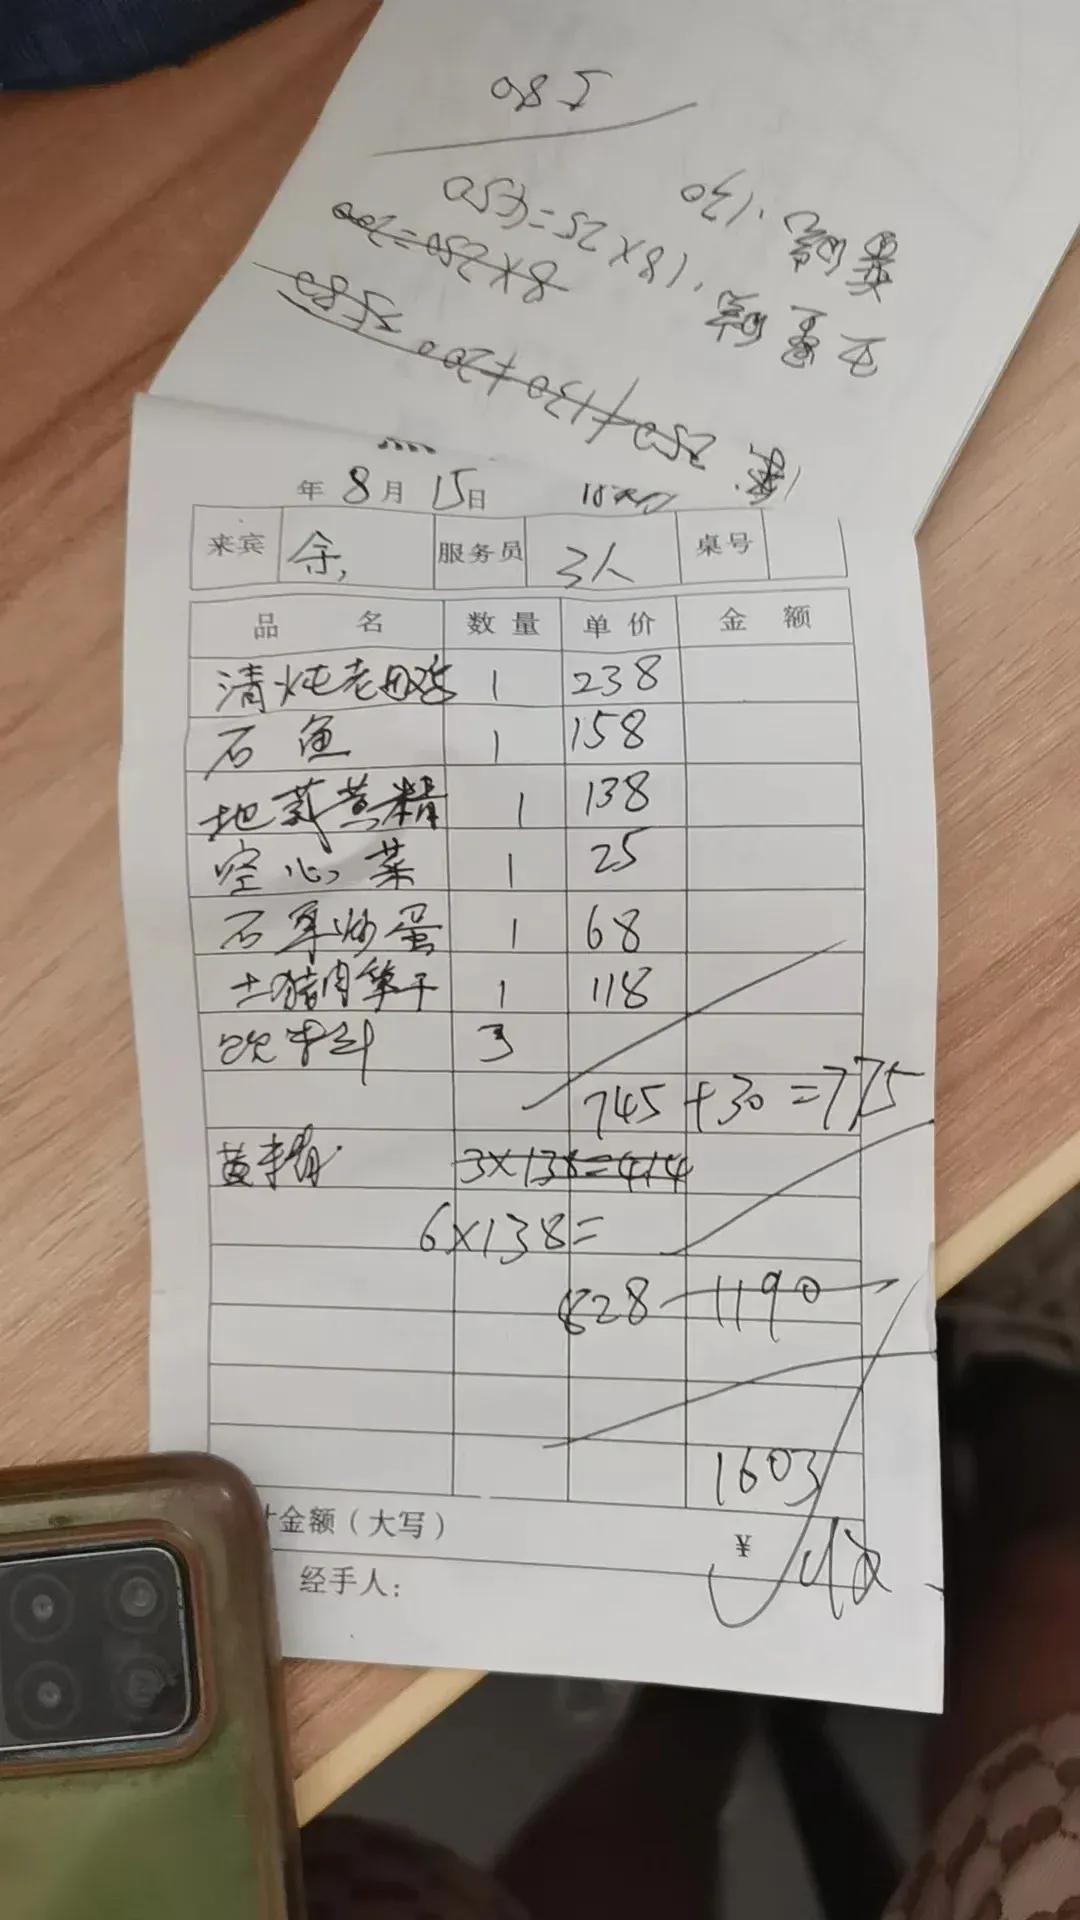 580
黄精.130
无量精.18×25=450
8×250=200
250+130+200 2580
年 8月 15日
来宾 余, 服务员 3人 桌号
品 名 数量 单价 金额
清炖老母鸡 1 238
石鱼 1 158
地蒸黄精 1 138
空心菜 1 25
石耳炒蛋 1 68
土猪肉笋干 1 118
3
745+30=775
黄精 3×138=414
6×138=
828 1190
1603
计金额(大写) ¥
经手人: